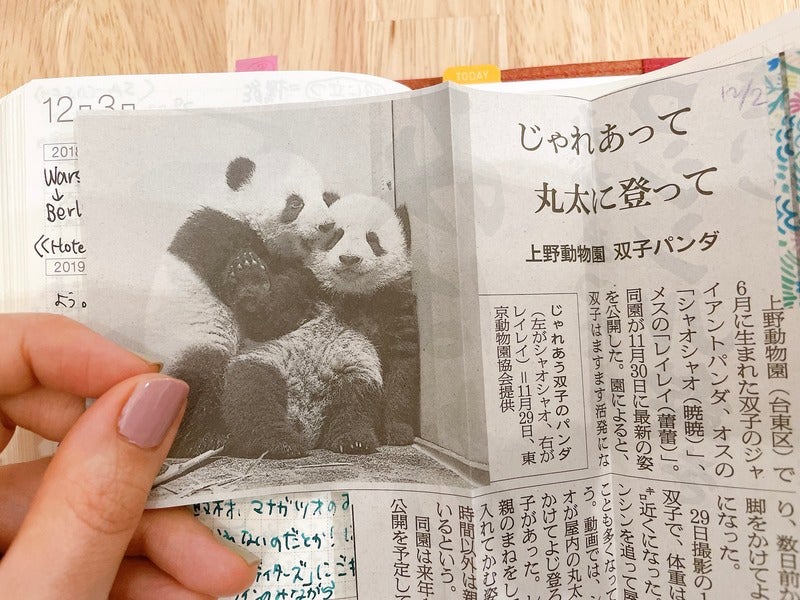 12月3日
TODAY
12/2
2018
Wars
↓
Berl
《Hote
2019
よう。
じゃれあって
丸太に登って
上野動物園 双子パンダ
じゃれあう双子のパンダ
（左がシャオシャオ、右が
レイレイ）＝11月29日、東
京動物園協会提供
上野動物園（台東区）で
6月に生まれた双子のジャ
イアントパンダ、オスの
「シャオシャオ（暁暁）」、
メスの「レイレイ（蕾蕾）」。
同園が11月30日に最新の姿
を公開した。園によると、
双子はますます活発にな
り、数日前か
脚をかけてよ
になった。
29日撮影の1
双子で、体重は
キロ近くになった
ンシンを追って屋
ことも多くなって
う。動画では、
オが屋内の丸太
かけてよじ登る
子があった。
親のまねをし
入れてかむ姿
時間以外は親
いるという。
同園は来年
公開を予定して
マナガツオの
ないのだとか！